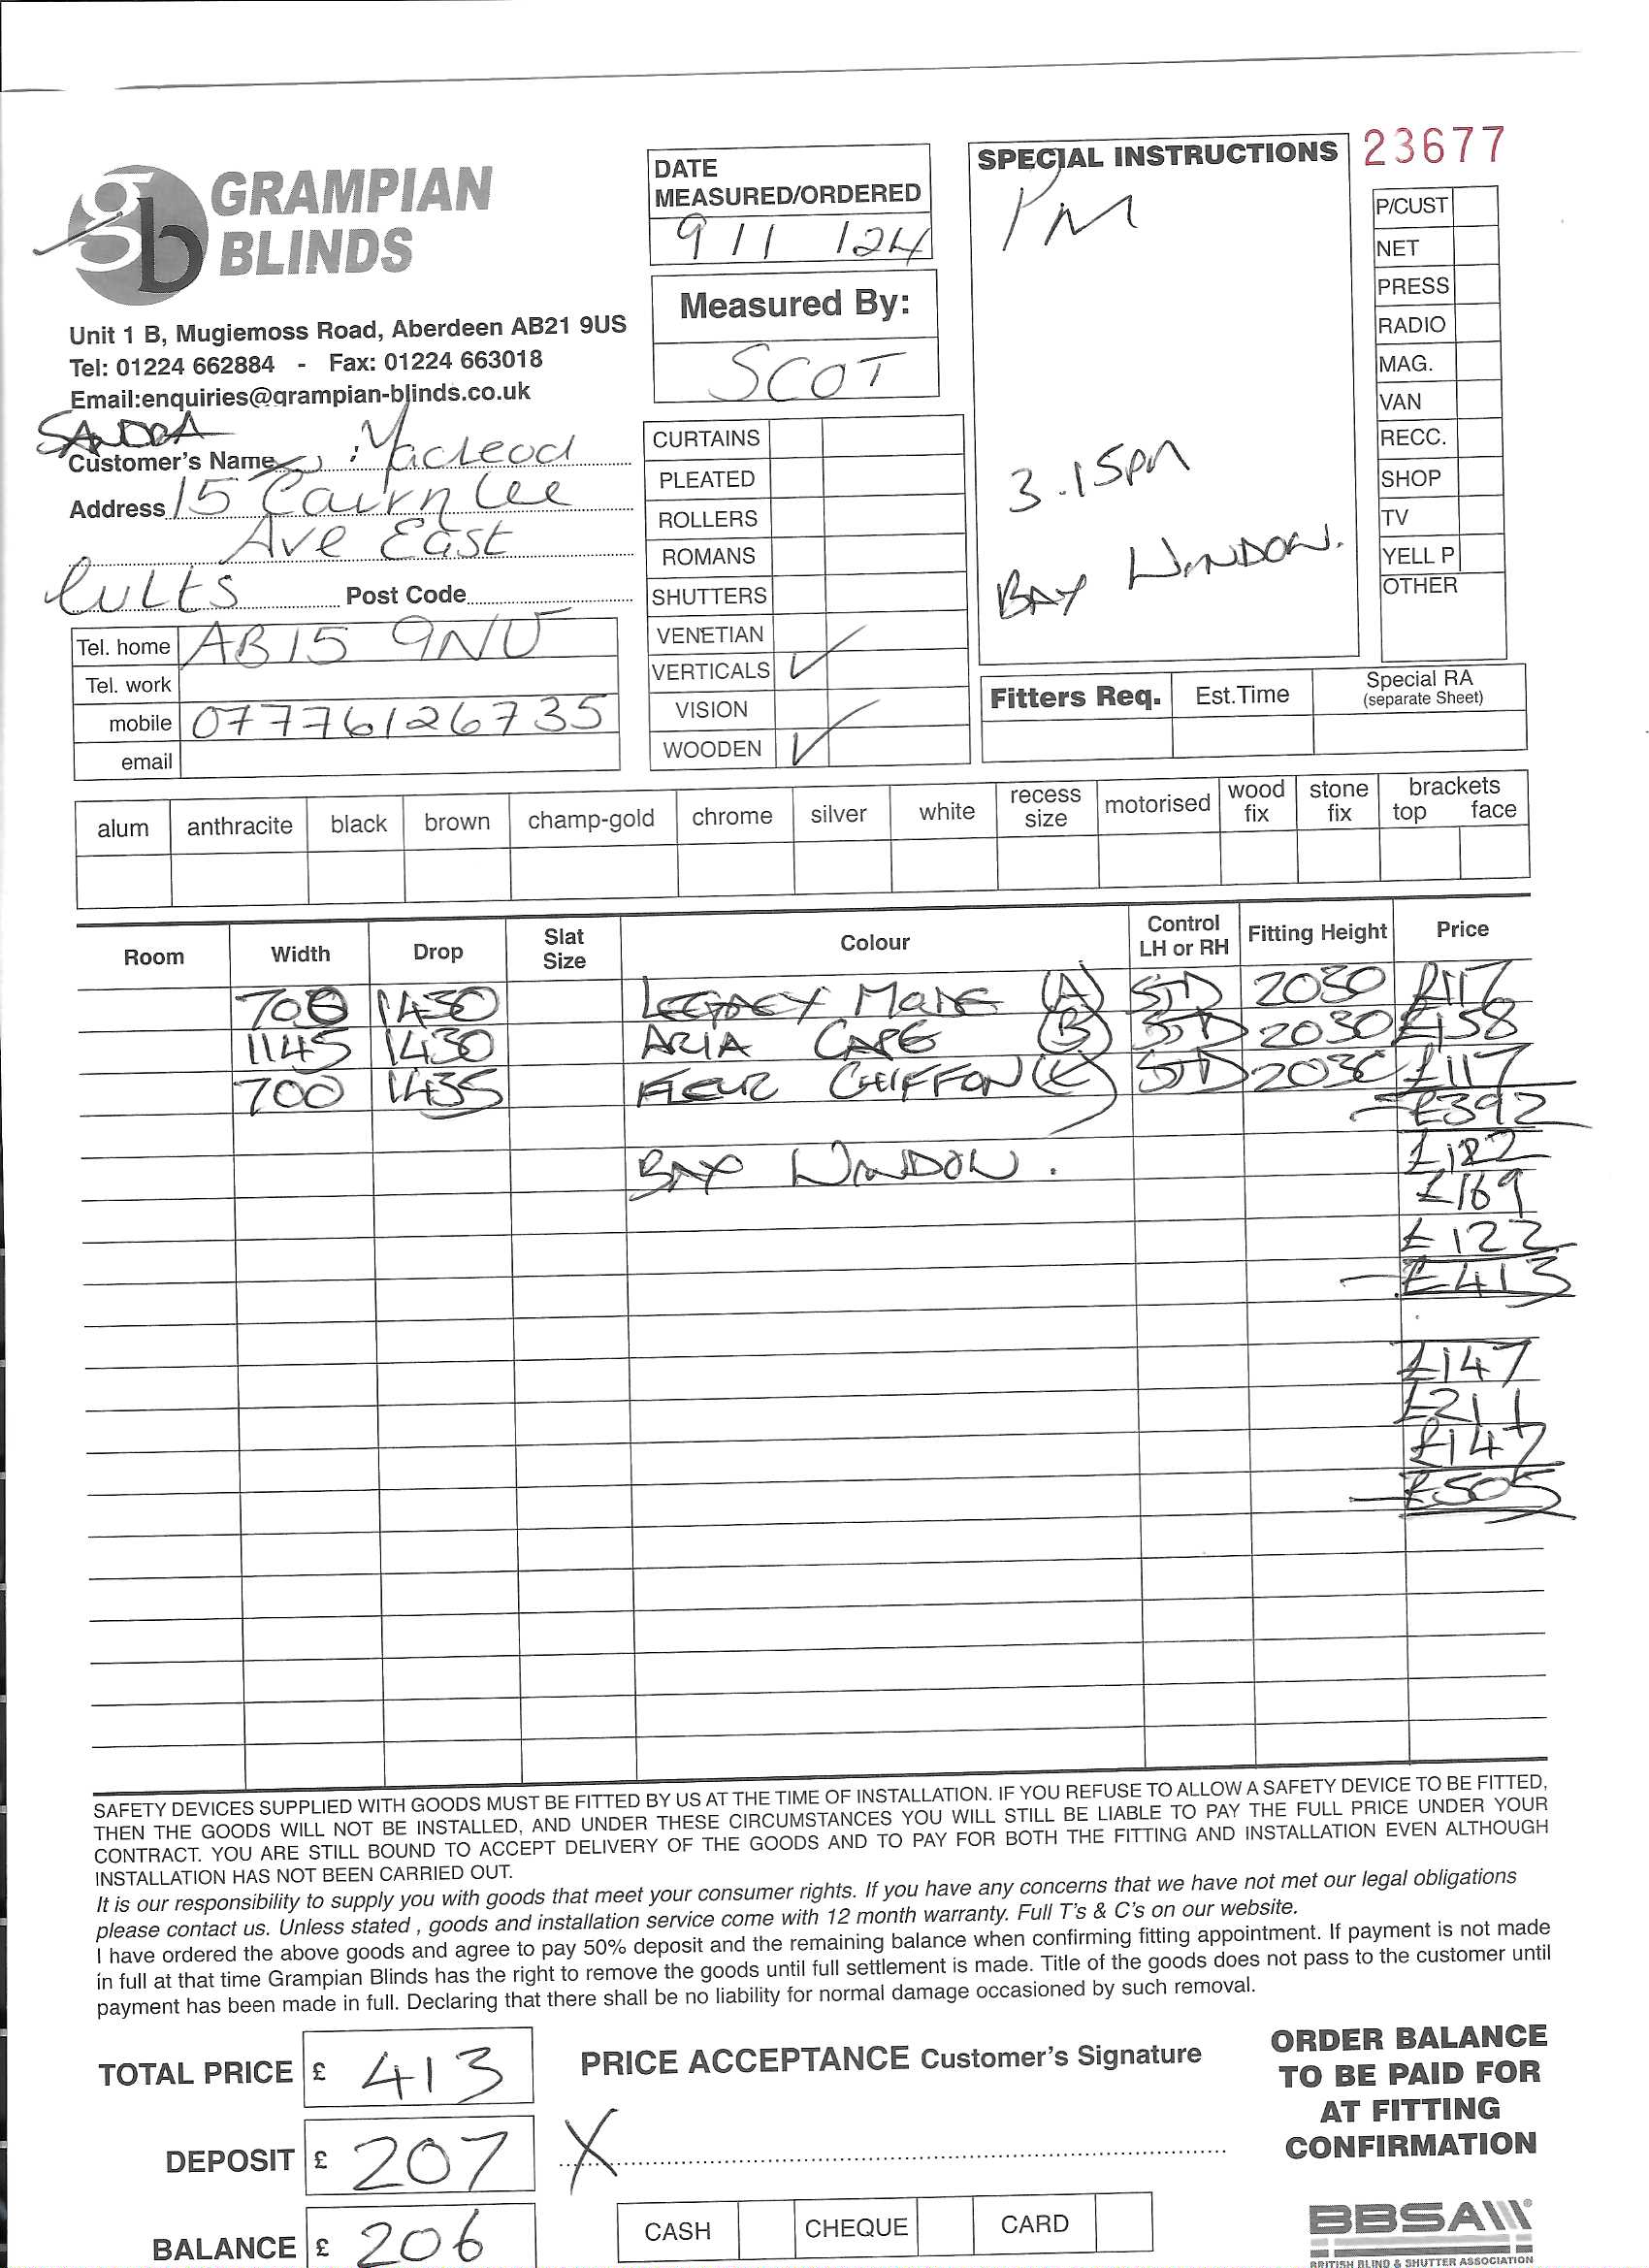 23677
GRAMPIAN
BLINDS
Unit 1 B, Mugiemoss Road, Aberdeen AB21 9US
Tel: 01224 662884 - Fax: 01224 663018
Email:enquiries@grampian-blinds.co.uk
DATE
MEASURED/ORDERED
9 / 1 / 24
Measured By:
SCOT
SPECIAL INSTRUCTIONS
PM
3.15pm
BAY WINDOW.
P/CUST
NET
PRESS
RADIO
MAG.
VAN
RECC.
SHOP
TV
YELL P
OTHER
SANDRA
Customer's Name Macleod
Address 15 Cairn Lee
Ave East
Cults Post Code
Tel. home AB15 9NU
Tel. work
mobile 07776126735
email
CURTAINS
PLEATED
ROLLERS
ROMANS
SHUTTERS
VENETIAN
VERTICALS ✓
VISION
WOODEN ✓
Fitters Req. Est.Time Special RA
(separate Sheet)
alum anthracite black brown champ-gold chrome silver white recess size motorised wood fix stone fix brackets top face
Room Width Drop Slat Size Colour Control LH or RH Fitting Height Price
700 1430 (A) STD 2030 £117
1145 1430 ARIA CAPE (B) STD 2030 £158
700 1435 FLEUR CHIFFON (C) STD 2030 £117
£392
BAY WINDOW. £122
£169
£122
£413
£147
£211
£147
£505
SAFETY DEVICES SUPPLIED WITH GOODS MUST BE FITTED BY US AT THE TIME OF INSTALLATION. IF YOU REFUSE TO ALLOW A SAFETY DEVICE TO BE FITTED,
THEN THE GOODS WILL NOT BE INSTALLED, AND UNDER THESE CIRCUMSTANCES YOU WILL STILL BE LIABLE TO PAY THE FULL PRICE UNDER YOUR
CONTRACT. YOU ARE STILL BOUND TO ACCEPT DELIVERY OF THE GOODS AND TO PAY FOR BOTH THE FITTING AND INSTALLATION EVEN ALTHOUGH
INSTALLATION HAS NOT BEEN CARRIED OUT.
It is our responsibility to supply you with goods that meet your consumer rights. If you have any concerns that we have not met our legal obligations
please contact us. Unless stated , goods and installation service come with 12 month warranty. Full T's & C's on our website.
I have ordered the above goods and agree to pay 50% deposit and the remaining balance when confirming fitting appointment. If payment is not made
in full at that time Grampian Blinds has the right to remove the goods until full settlement is made. Title of the goods does not pass to the customer until
payment has been made in full. Declaring that there shall be no liability for normal damage occasioned by such removal.
TOTAL PRICE £ 413
DEPOSIT £ 207
BALANCE £ 206
PRICE ACCEPTANCE Customer's Signature
X
CASH CHEQUE CARD
ORDER BALANCE
TO BE PAID FOR
AT FITTING
CONFIRMATION
BBSA
BRITISH BLIND & SHUTTER ASSOCIATION